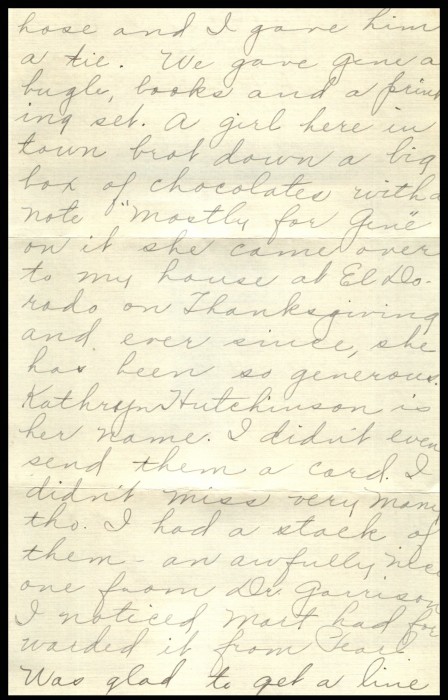 hose and I gave him
a tie. We gave Gene a
bugle, books and a print
ing set. A girl here in
town brot down a big
box of chocolates with a
note "Mostly for Gene"
on it she came over
to my house at El Do-
rado on Thanksgiving
and ever since, she
has been so generous.
Kathryn Hutchinson is
her name. I didn't even
send them a card. I
didn't miss very many
tho. I had a stack of
them - an awfully nice
one from Dr. Garrison
I noticed Mart had for
warded it from
Was glad to get a line